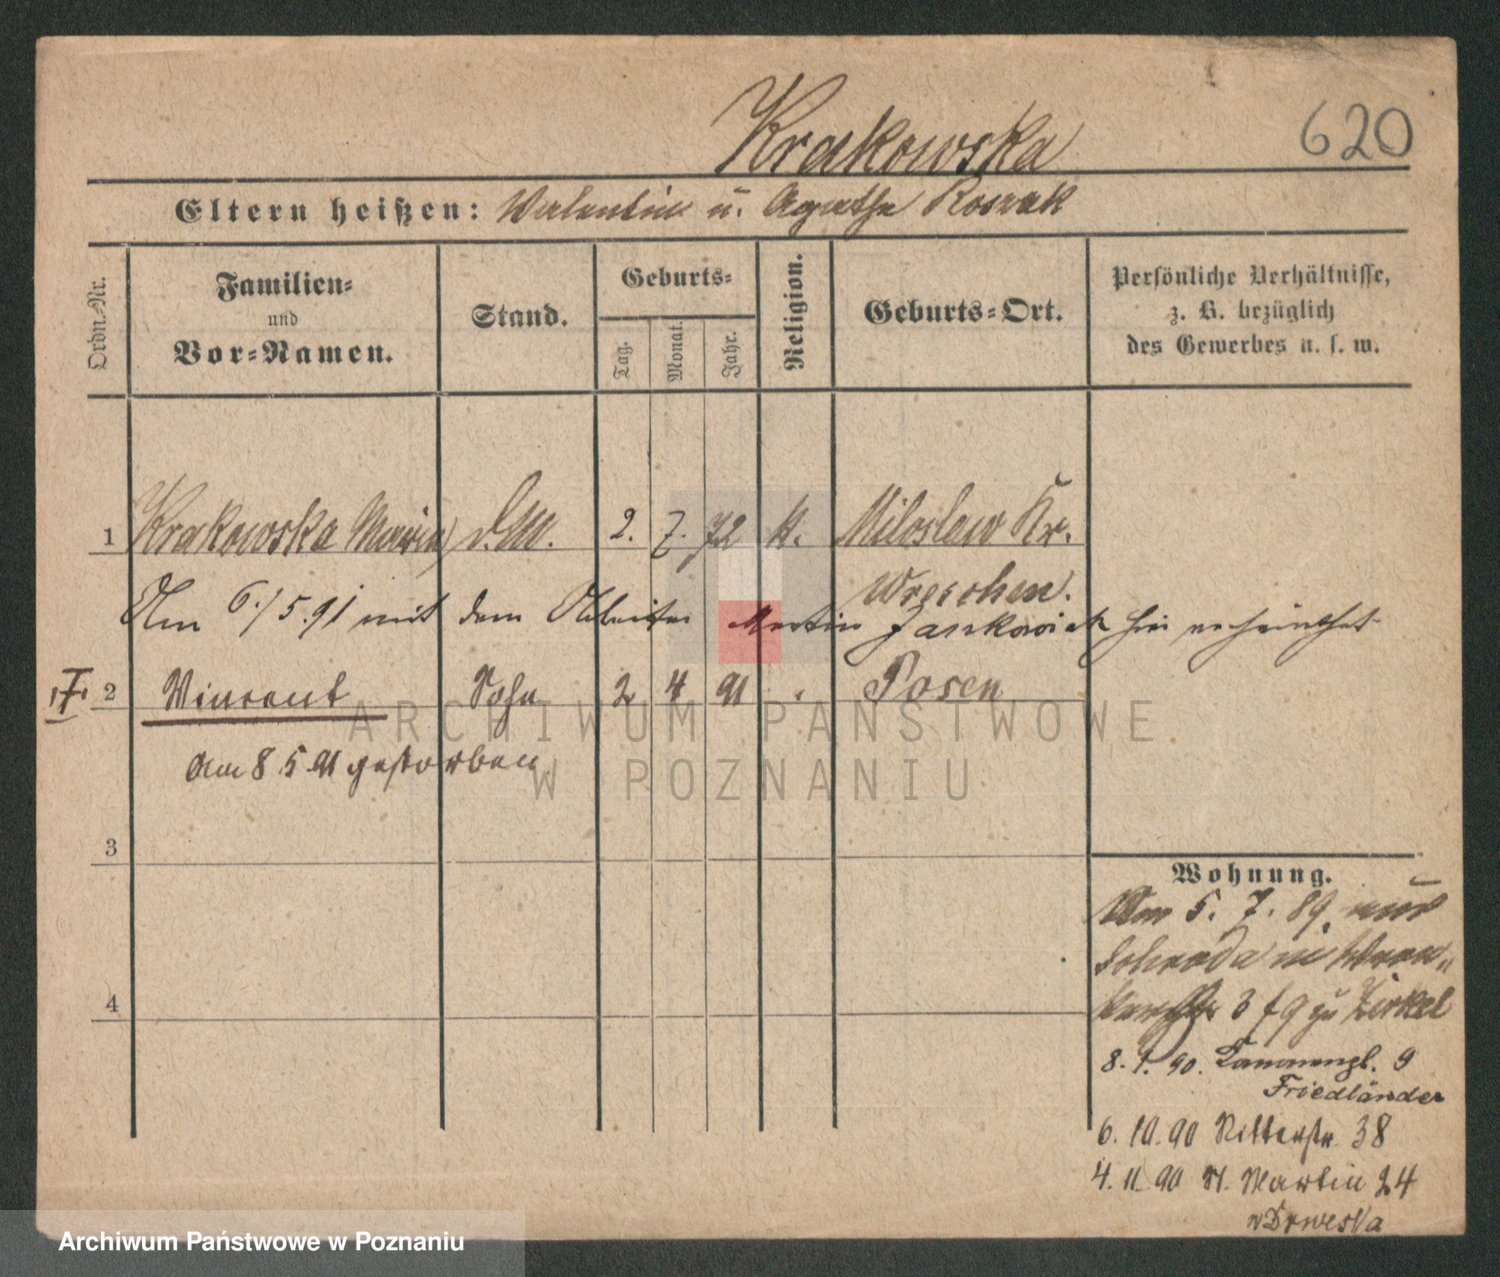 Krakowska 620
Eltern heißen: Valentin u. Agathe Roszak
Ordn.-Nr.
Familien-
und
Vor-Namen.
Stand.
Geburts-
Tag.
Monat.
Jahr.
Religion.
Geburts-Ort.
Persönliche Verhältnisse,
z. B. bezüglich
des Gewerbes u. s. w.
1 Krakowska Maria D.M. 2. 7. 72 k. Miloslaw Kr.
Wreschen.
Am 6./5.91 mit dem Arbeiter Martin Jankowiak hier verheirathet
2 Vincent Sohn 2 4 91 Posen
am 8 5 91 gestorben
3
4
Wohnung.
Am 5. 7. 89. aus
Schroda n.
3 f 9 zu Zirkel
8. 1. 90. 9
Friedländer
6. 10. 90 Ritterstr 38
4. 11. 90 St. Martin 24
v Drweska
ARCHIWUM PAŃSTWOWE
W POZNANIU
Archiwum Państwowe w Poznaniu